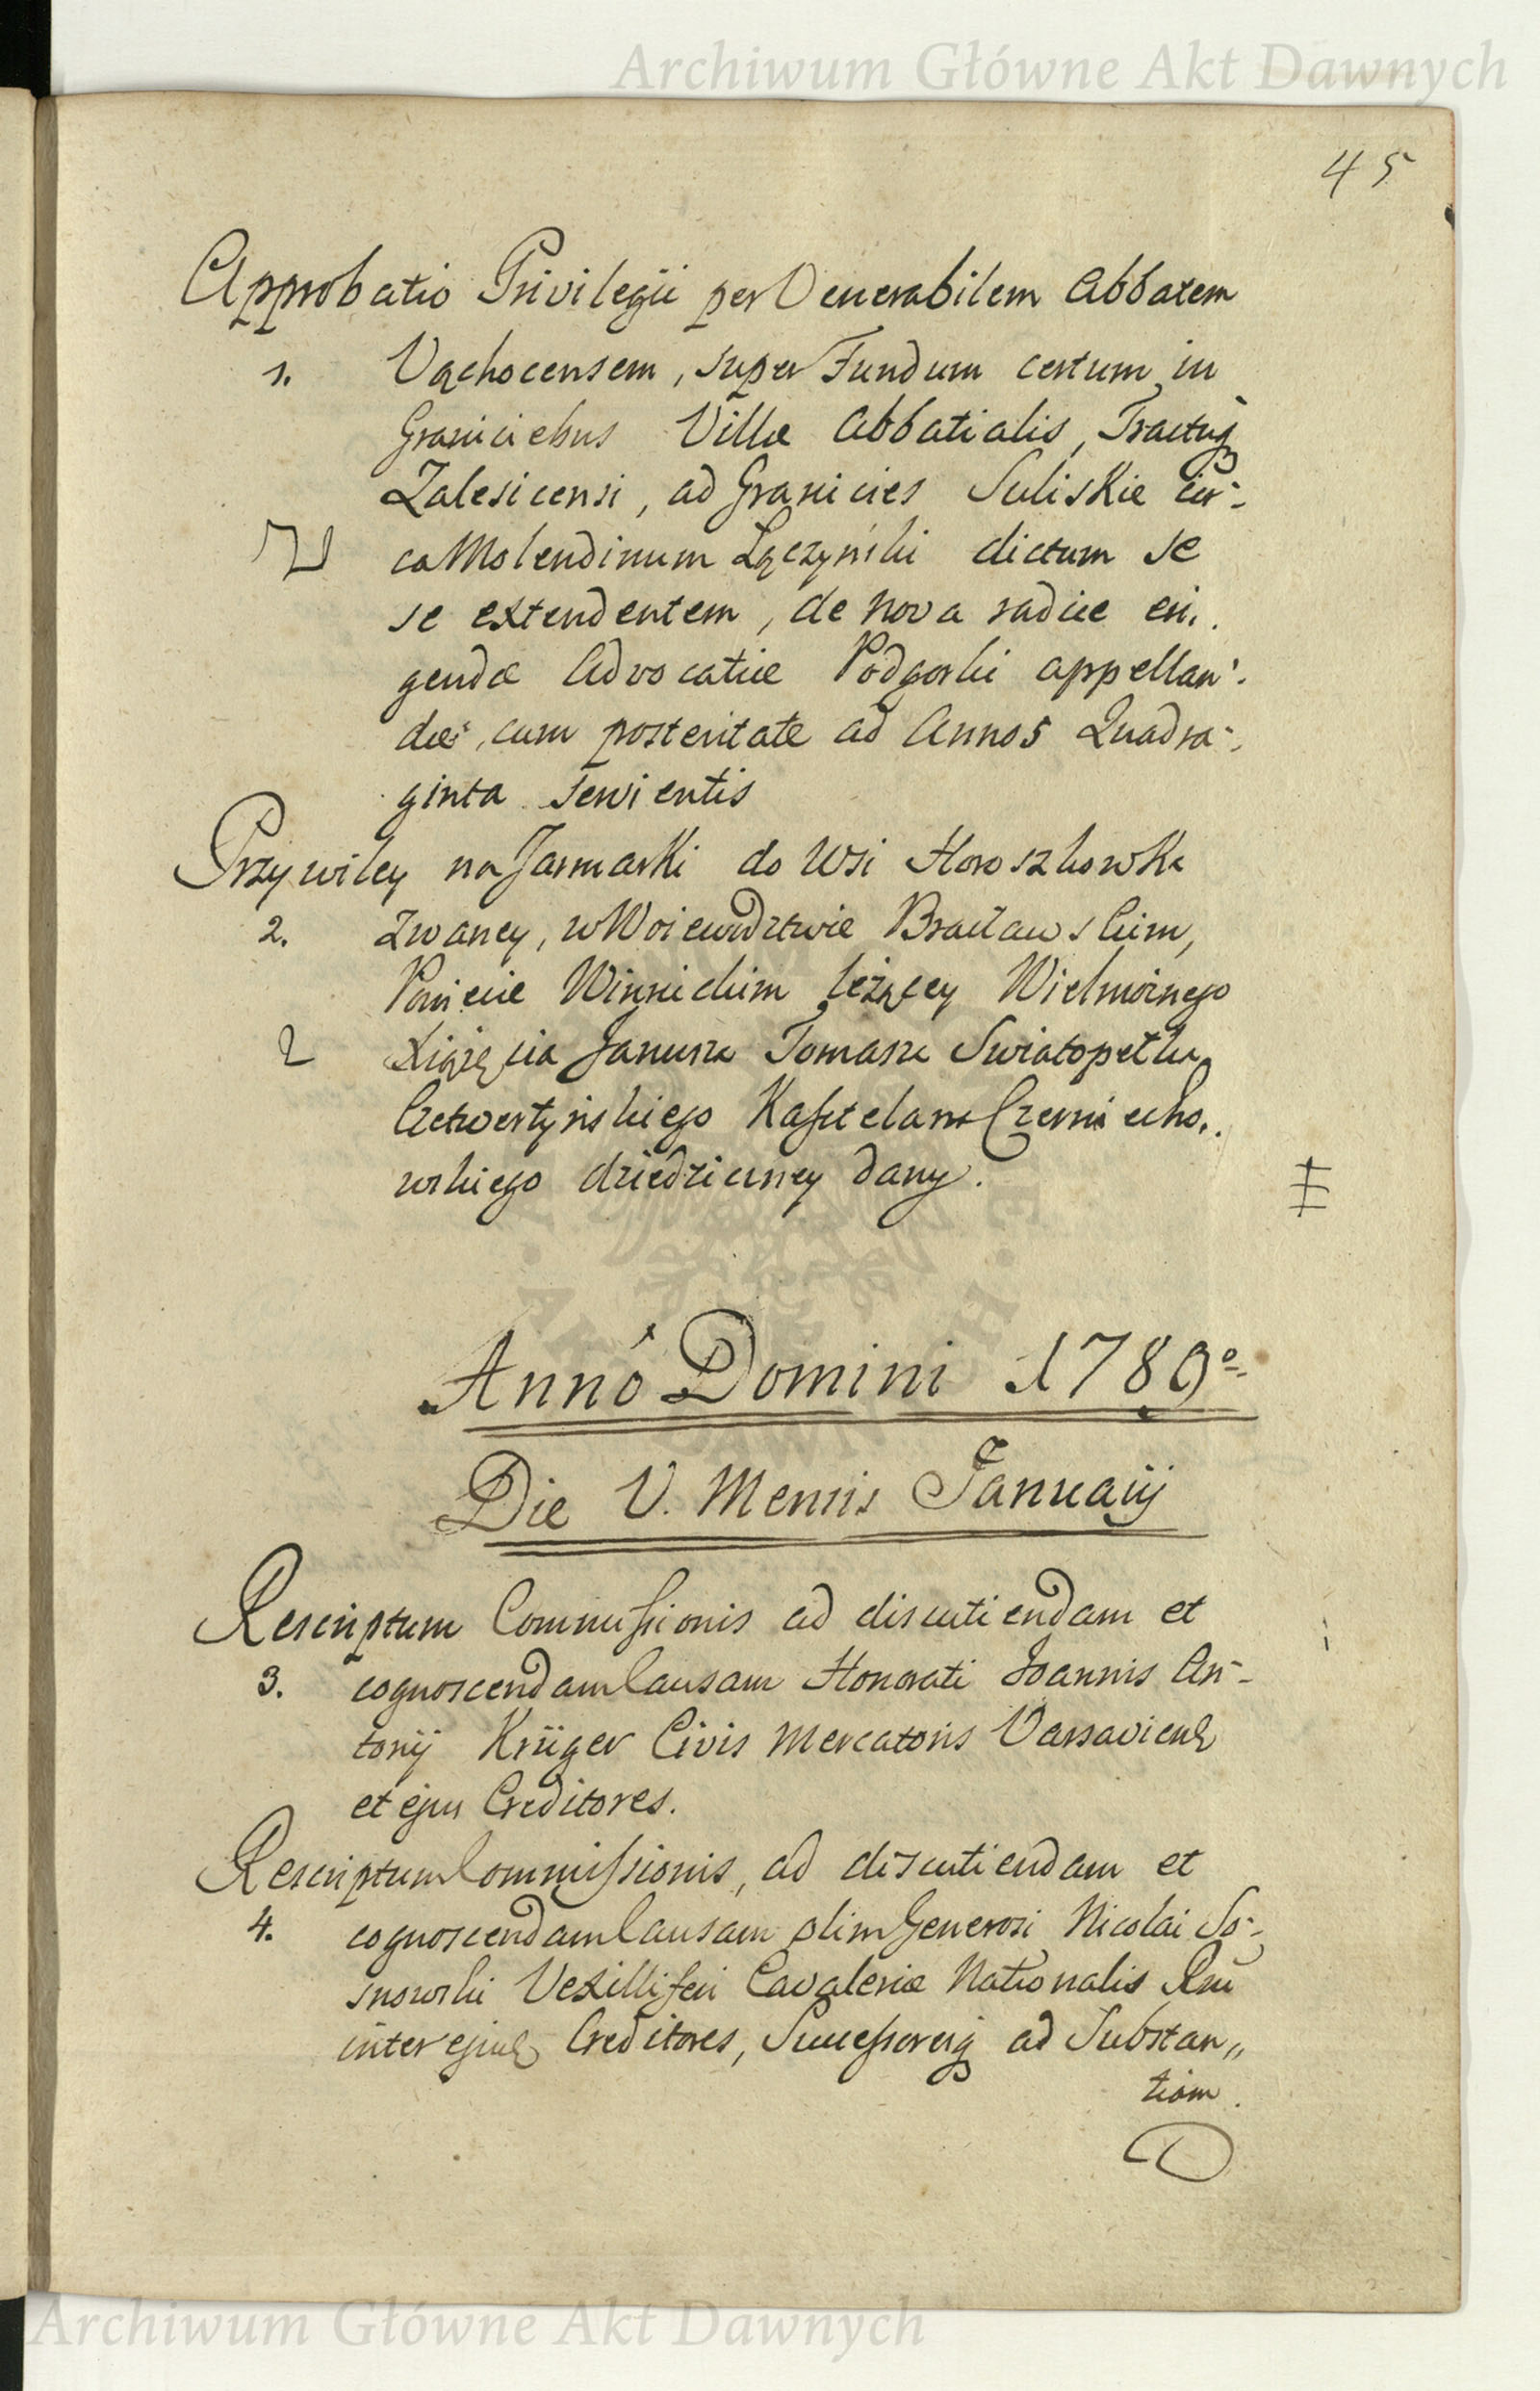 Archiwum Główne Akt Dawnych
45
Approbatio Privilegii per Venerabilem Abbatem
1. Vąchocensem, super Fundum certum in
Graniciebus Villæ Abbatialis, Tractuq
Zalesicensi, ad Granicies Suliskie cir-
ca Molendinum Łączyński dictum se
se extendentem, de nova radice eri.
gendæ Advocatiæ Podgorski appellan-
dæ, cum posteritate ad Annos Quadra-
ginta servientis
Przywiley na Jarmarki do Wsi Horoszkowka
2. Zwaney, w Woiewodztwie Bracławskim,
Powiecie Winnickim leżącey Wielmożnego
Xiążęcia Janusza Tomasza Swiatopełka
Czetwertyńskiego Kasztelana Czerniecho.
wskiego dziedziczney dany.
Annô Domini 1789º
Die V. Mensis Januarij
Rescriptum Commissionis ad discutiendam et
3. cognoscendam Causam Honorati Joannis An-
tonij Krüger Civis Mercatoris Varsaviens
et ejus Creditores.
Rescriptum Commissionis, ad discutiendam et
4. cognoscendam Causam olim Generosi Nicolai So-
snowski Vexilliferi Cavaleriæ Nationalis
inter ejusq Creditores, Successoresq ad Substan„
tiam.
Archiwum Główne Akt Dawnych